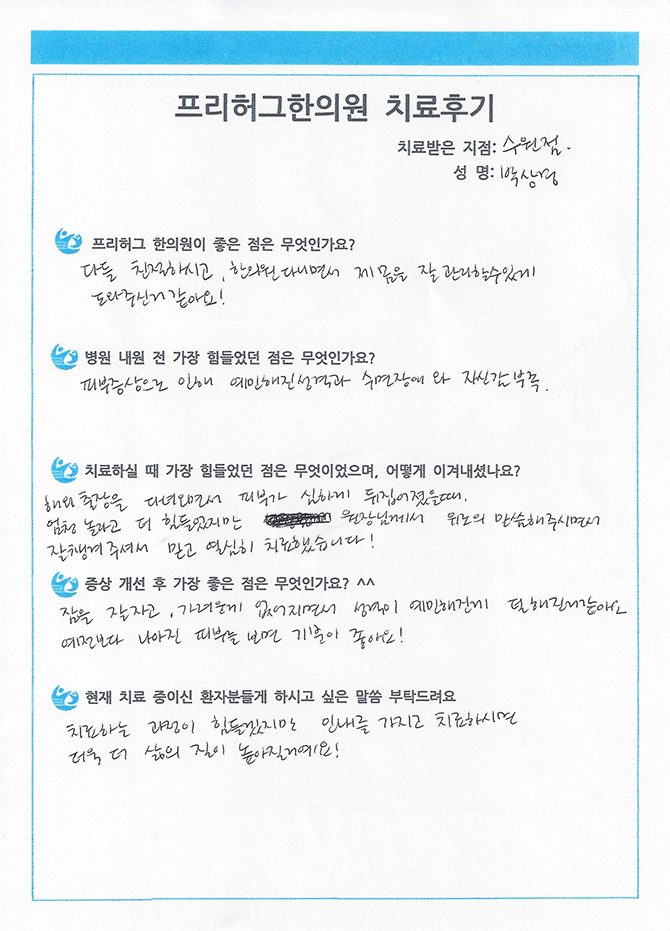 프리허그한의원 치료후기
치료받은 지점: 수원점.
성 명: 박상경
프리허그 한의원이 좋은 점은 무엇인가요?
다들 친절하시고, 한의원 다니면서 제 몸을 잘 관리할수있게
도와주신거 같아요!
병원 내원 전 가장 힘들었던 점은 무엇인가요?
피부증상으로 인해 예민해진성격과 수면장애 와 자신감부족.
치료하실 때 가장 힘들었던 점은 무엇이었으며, 어떻게 이겨내셨나요?
해외 출장을 다녀오면서 피부가 심하게 뒤집어졌을때.
엄청 놀라고 더 힘들었지만 원장님께서 위로의 말씀해주시면서
잘챙겨주셔서 믿고 열심히 치료했습니다!
증상 개선 후 가장 좋은 점은 무엇인가요? ^^
잠을 잘자고, 가려운게 없어지면서 성격이 예민해진게 덜해진거같아요
예전보다 나아진 피부를 보면 기분이 좋아요!
현재 치료 중이신 환자분들게 하시고 싶은 말씀 부탁드려요
치료하는 과정이 힘들겠지만 인내를 가지고 치료하시면
더욱 더 삶의 질이 높아질거예요!